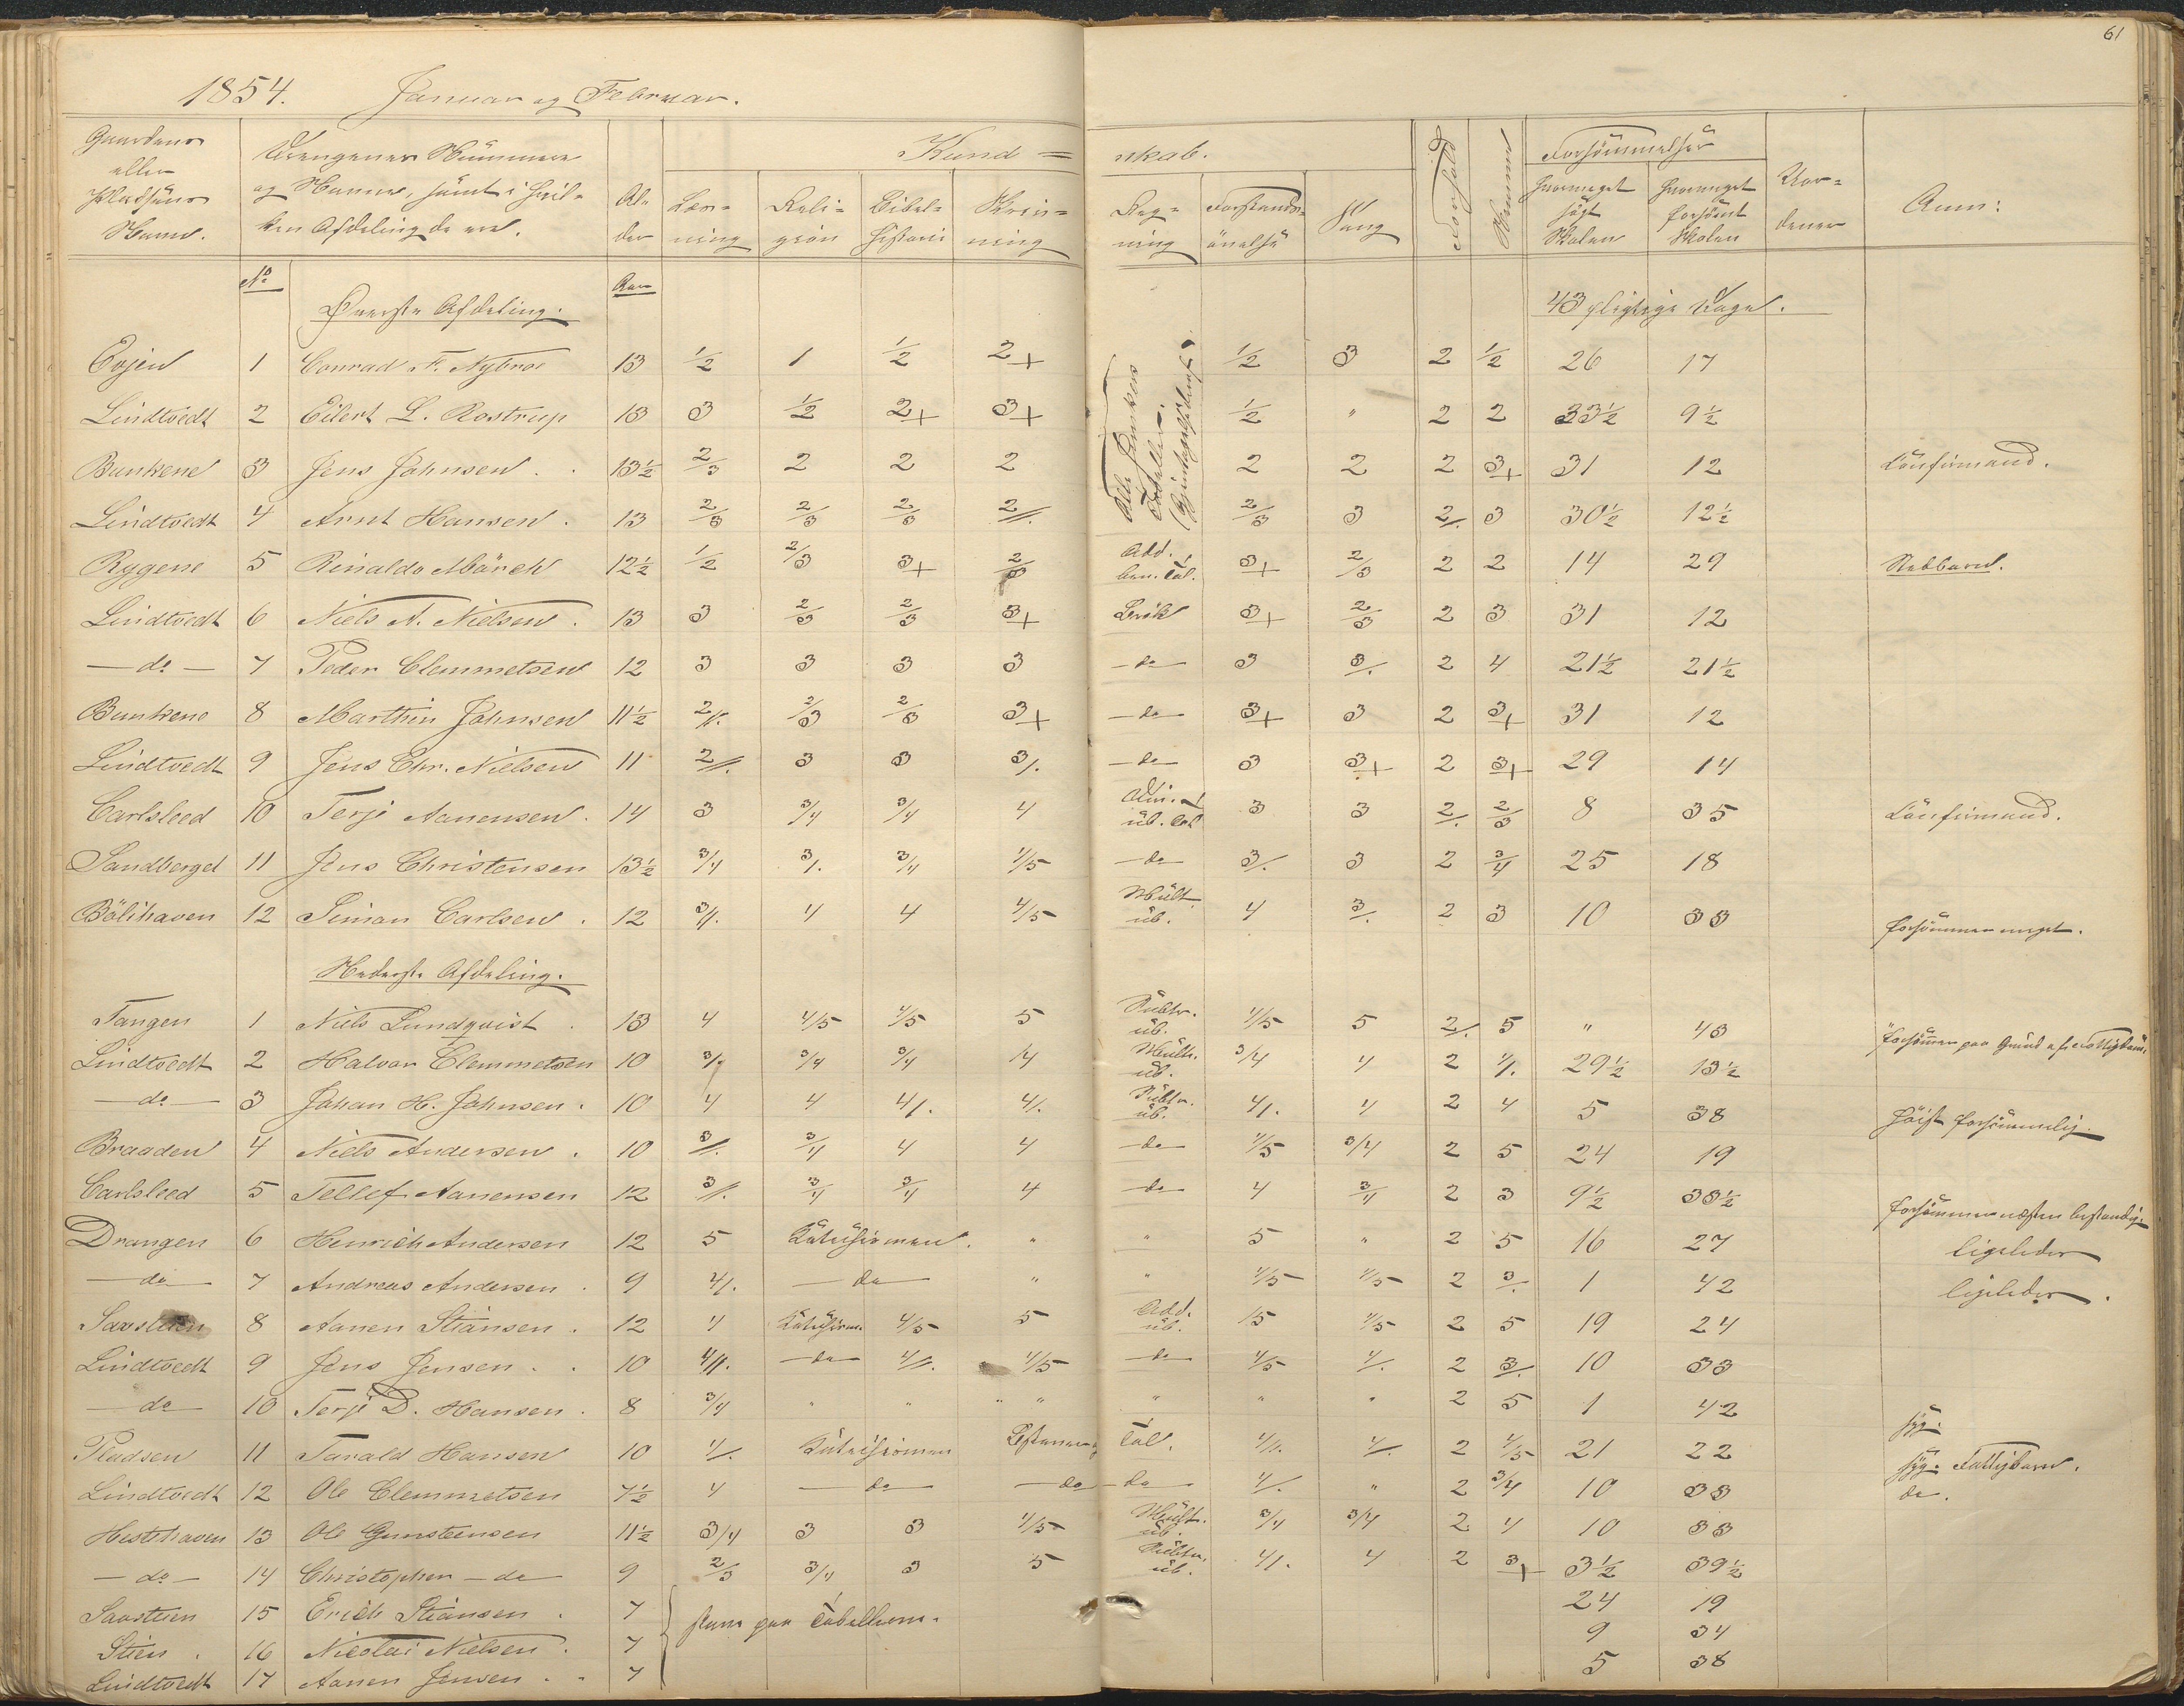 61
1854. Januar og Februar.
Gaardens eller Pladsens Navn.
Drengenes Nummere og Navne, samt i hvilken Afdeling de ere.
Alder
Kundskab.
Læsning
Religion
Bibelhistorie
Skrivning
Regning
Forstandsøvelse
Sang
Forhold
Fremmøde
Forsømmelser
hvormeget søgt Skolen
hvormeget forsømt Skolen
Anm:
No Øverste Afdeling. Aar 43 pligtige Dage.
Evjen 1 Conrad F. Nybroe 13 1/2 1 1/2 2+ 1/2 3 2 1/2 26 17
Lindtvedt 2 Eilert L. Rostrup 13 3 1/2 2+ 3+ 1/2 " 2 2 33½ 9½
Bunkene 3 Jens Johnsen 13½ 2/3 2 2 2 2 2 2 3+ 31 12 Confirmand.
Lindtvedt 4 Arnt Hansen 13 2/3 2/3 2/3 2//. 2/3 3 2/. 3 30½ 12½
Rygene 5 Rinaldo Mörch 12½ 1/2 2/3 3+ 2/3 Add. ben. Tal. 3+ 2/3 2 2 14 29
Lindtvedt 6 Niels N. Nielsen 13 3 2/3 2/3 3+ Brøk 3+ 2/3 2 3 31 12
— do — 7 Peder Clemmetsen 12 3 3 3 3 — do 3 3/. 2 4 21½ 21½
Bunkene 8 Marthin Johnsen 11½ 2//. 2/3 2/3 3+ — do 3+ 3 2 3+ 31 12
Lindtvedt 9 Jens Chr. Nielsen 11 2//. 3 3 3/. — do 3 3+ 2 3+ 29 14
Carlsleed 10 Terje Aanensen 14 3 3/4 3/4 4 Div. ub. Tal 3 3 2/. 2/3 8 35 Confirmand.
Sandberget 11 Jens Christensen 13½ 3/4 3/. 3/4 4/5 — do 3/. 3 2 3/4 25 18
Bölihaven 12 Simon Carlsen 12 3//. 4 4 4/5 Mult. ub. 4 3/. 2 3 10 33 forsømmer meget.
Nederste Afdeling.
Tangen 1 Niels Lundqvist 13 4 4/5 4/5 5 Subtr. ub. 4/5 5 2/. 5 " 43
Lindtvedt 2 Halvor Clemmetsen 10 3/. 3/4 3/4 4 Mult. ub. 3/4 4 2 4/. 29½ 13½
— do — 3 Johan H. Johnsen 10 4 4 4/. 4/. Subtr. ub. 4/. 4 2 4 5 38 høist forsømmelig.
Braaden 4 Niels Andersen 10 3//. 3/4 4 4 — do 4/5 3/4 2 5 24 19
Carlsleed 5 Tellef Aanensen 12 3//. 3/4 3/4 4 — do 4 3/4 2 3 9½ 33½ forsømmer næsten bestandig
Drangen 6 Henrich Andersen 12 5 Katechismen. " " 5 " 2 5 16 27 ligeledes
— do 7 Andreas Andersen 9 4/. — do " " 4/5 4/5 2 3/. 1 42 ligeledes.
Saxsteen 8 Aanen Stiansen 12 4 Katechism. 4/5 5 Add. ub. 15 4/5 2 5 19 24
Lindtvedt 9 Jens Jensen 10 4//. — do 4//. 4/5 — do 4/5 4/. 2 3/. 10 33
— do 10 Terje D. Hansen 8 3/4 " " " " " " " 2 5 1 42 syg.
Pladsen 11 Tarald Hansen 10 4/. Katechismen Tal. 4//. 4/. 2 4/5 21 22 syg. Fattigbarn.
Lindtvedt 12 Ole Clemmetsen 7½ 4 — do — do — do 4/. " 2 3/4 10 33 do.
Hestehaven 13 Ole Gunsteensen 11½ 3/4 3 3 4/5 Mult. ub. 3/4 3/4 2 4 10 33
— do — 14 Christopher — do 9 2/3 3/4 3 5 Subtr. ub. 4/. 4 2 3+ 3½ 39½
Saxsteen 15 Erich Stiansen 7 staae paa Tabellerne. 24 19
Stien 16 Nicolai Nielsen 7 9 34
Lindtvedt 17 Aanen Jensen 7 5 38